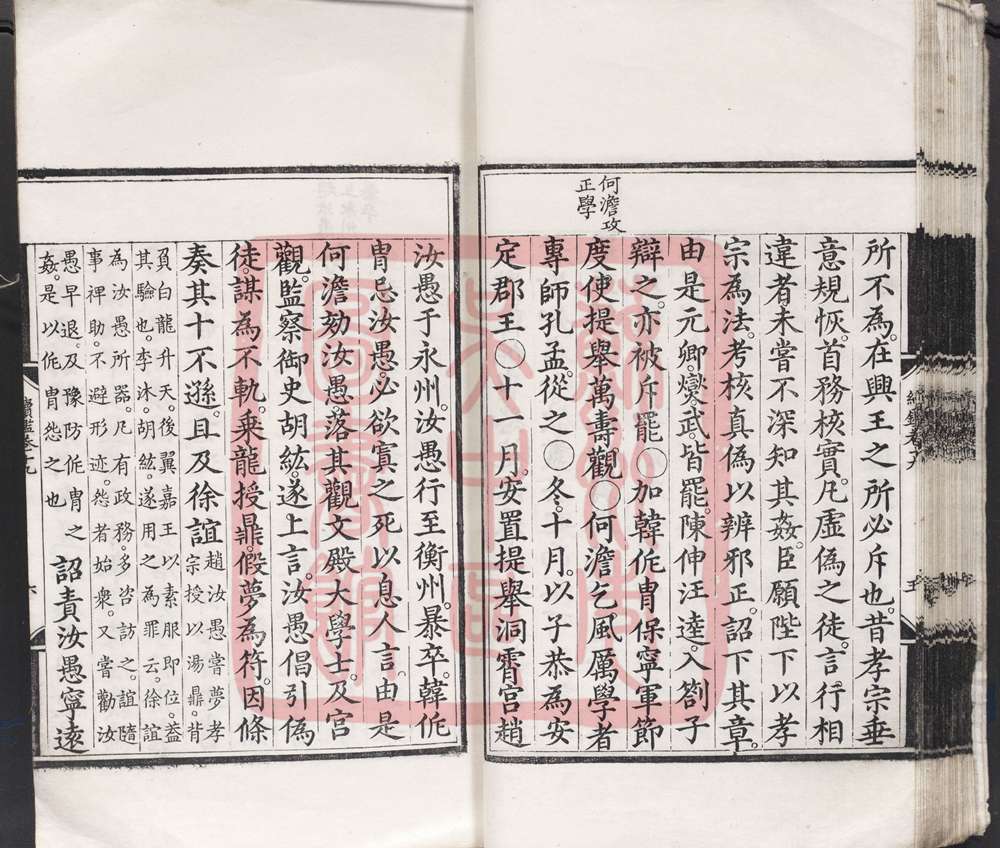 何澹攻
正學
所不為。在興王之所必斥也。昔孝宗垂
意規恢。首務核實。凡虛偽之徒。言行相
違者。未嘗不深知其姦。臣願陛下以孝
宗為法。考核真偽以辨邪正。詔下其章。
由是元卿。燮武。皆罷。陳伸汪逵。入劄子
辯之。亦被斥罷○加韓侂胄保寧軍節
度使提舉萬壽觀○何澹乞。風厲學者
專師孔孟。從之○冬。十月。以子恭為安
定郡王○十一月。安置提舉洞霄宮趙
汝愚于永州。汝愚行至衡州。暴卒。韓侂
胄忌汝愚必欲寘之死以息人言。由是
何澹劾汝愚落其觀文殿大學士。及宮
觀。監察御史胡紘。遂上言。汝愚倡引偽
徒。謀為不軌。乘龍授鼎。假夢為符。因條
奏其十不遜。且及徐誼 趙汝愚嘗夢孝
宗授以湯鼎。背
負白龍升天。後翼嘉王以素服即位。蓋
其驗也。李沐。胡紘。遂用之為罪云。徐誼
為汝愚所器。凡有政務。多咨訪之。誼隨
事裨助。不避形迹。怨者始衆。又嘗勸汝
愚早退。及豫防侂胄之
姦。是以侂胄怨之也 詔責汝愚寧遠
續鑑卷九
五
續鑑卷九
六